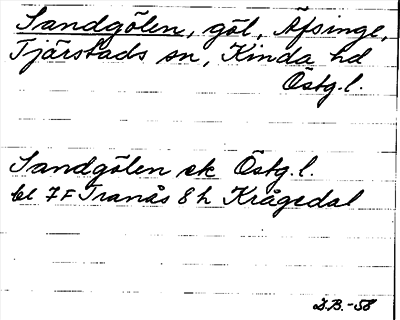 Sandgölen, göl, Äfsinge,
Tjärstads sn, Kinda hd
Östg.l.
Sandgölen ek Östg.l.
bl 7F Tranås 8h Krågedal
D.B.-58